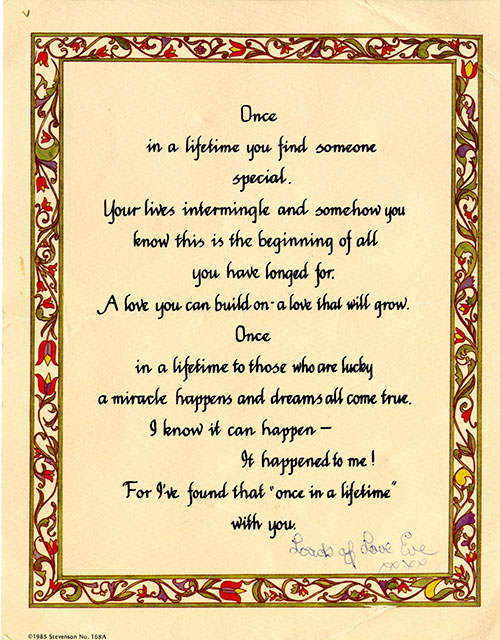 Once
in a lifetime you find someone
special.
Your lives intermingle and somehow you
know this is the beginning of all
you have longed for.
A love you can build on - a love that will grow.
Once
in a lifetime to those who are lucky
a miracle happens and dreams all come true.
I know it can happen —
It happened to me!
For I've found that "once in a lifetime"
with you.
Loads of Love Eve
xxxx
©1985 Stevenson No. 168A